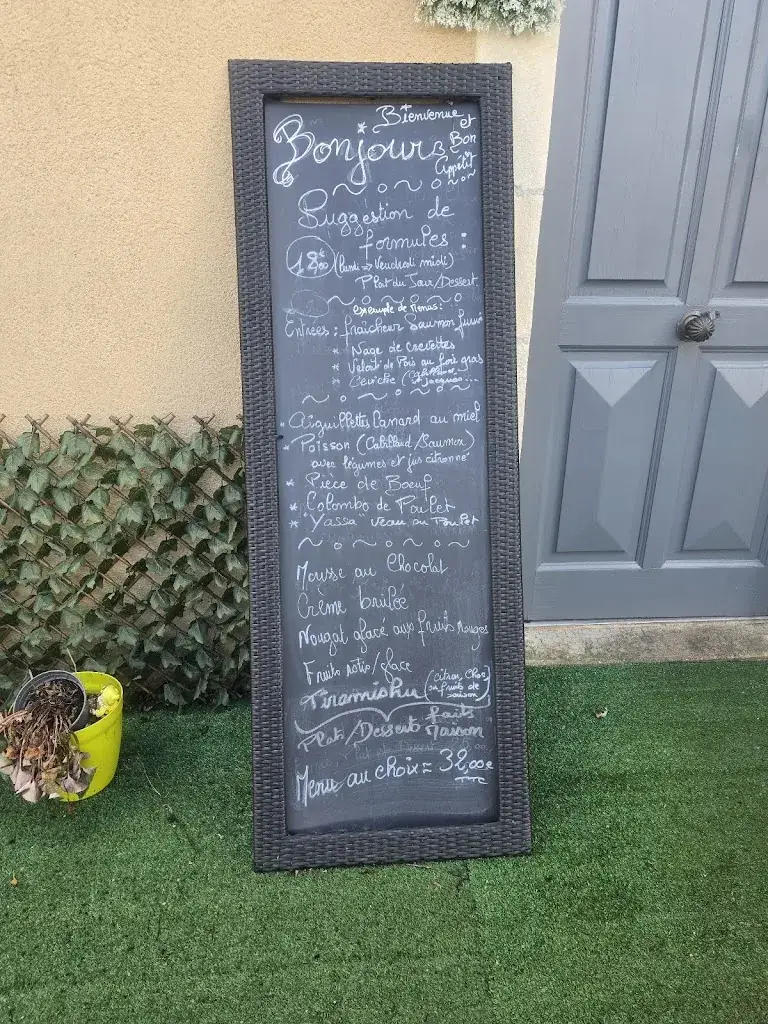 * Bienvenue
et
Bon
Appétit
Bonjour
Suggestion de
formules :
18€00 (lundi => Vendredi midi)
Plat du Jour/Dessert
exemple de menus:
Entrées : fraîcheur Saumon fumé
* Nage de crevettes
* Velouté de Pois au foie gras
* Ceviche (Cabillaud
St Jacques...
* Aiguillettes Canard au miel
* Poisson (Cabillaud/Saumon)
avec légumes et jus citronné
* Pièce de Boeuf
* Colombo de Poulet
* "Yassa" veau ou Poulet
Mousse au Chocolat
Crème brulée
Nougat glacé aux fruits rouges
Fruits rotis/glace
Tiramishu (citron, Choc
ou fruits de
saison)
Plat/Desserts faits
Maison
Menu au choix = 32,00€
TTC